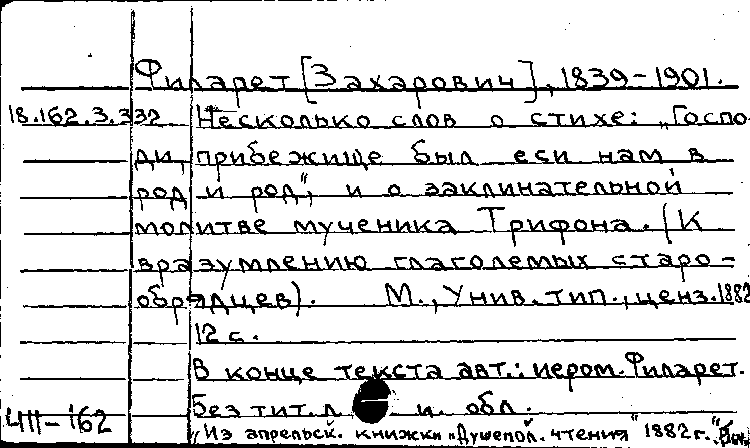 Филарет [Захарович], 1839-1901.
18.162.3.332 Несколько слов о стихе: „Госпо
ди, прибежище был еси нам в
род и род", и о заклинательной
молитве мученика Трифона. (К
вразумлению глаголемых старо-
обрядцев). М., Унив. тип., ценз. 1882
12 с.
В конце текста авт.: иером. Филарет.
Без тит. л. и обл.
Ч111-162
„Из апрельск. книжки „Душепол. чтения" 1882 г."